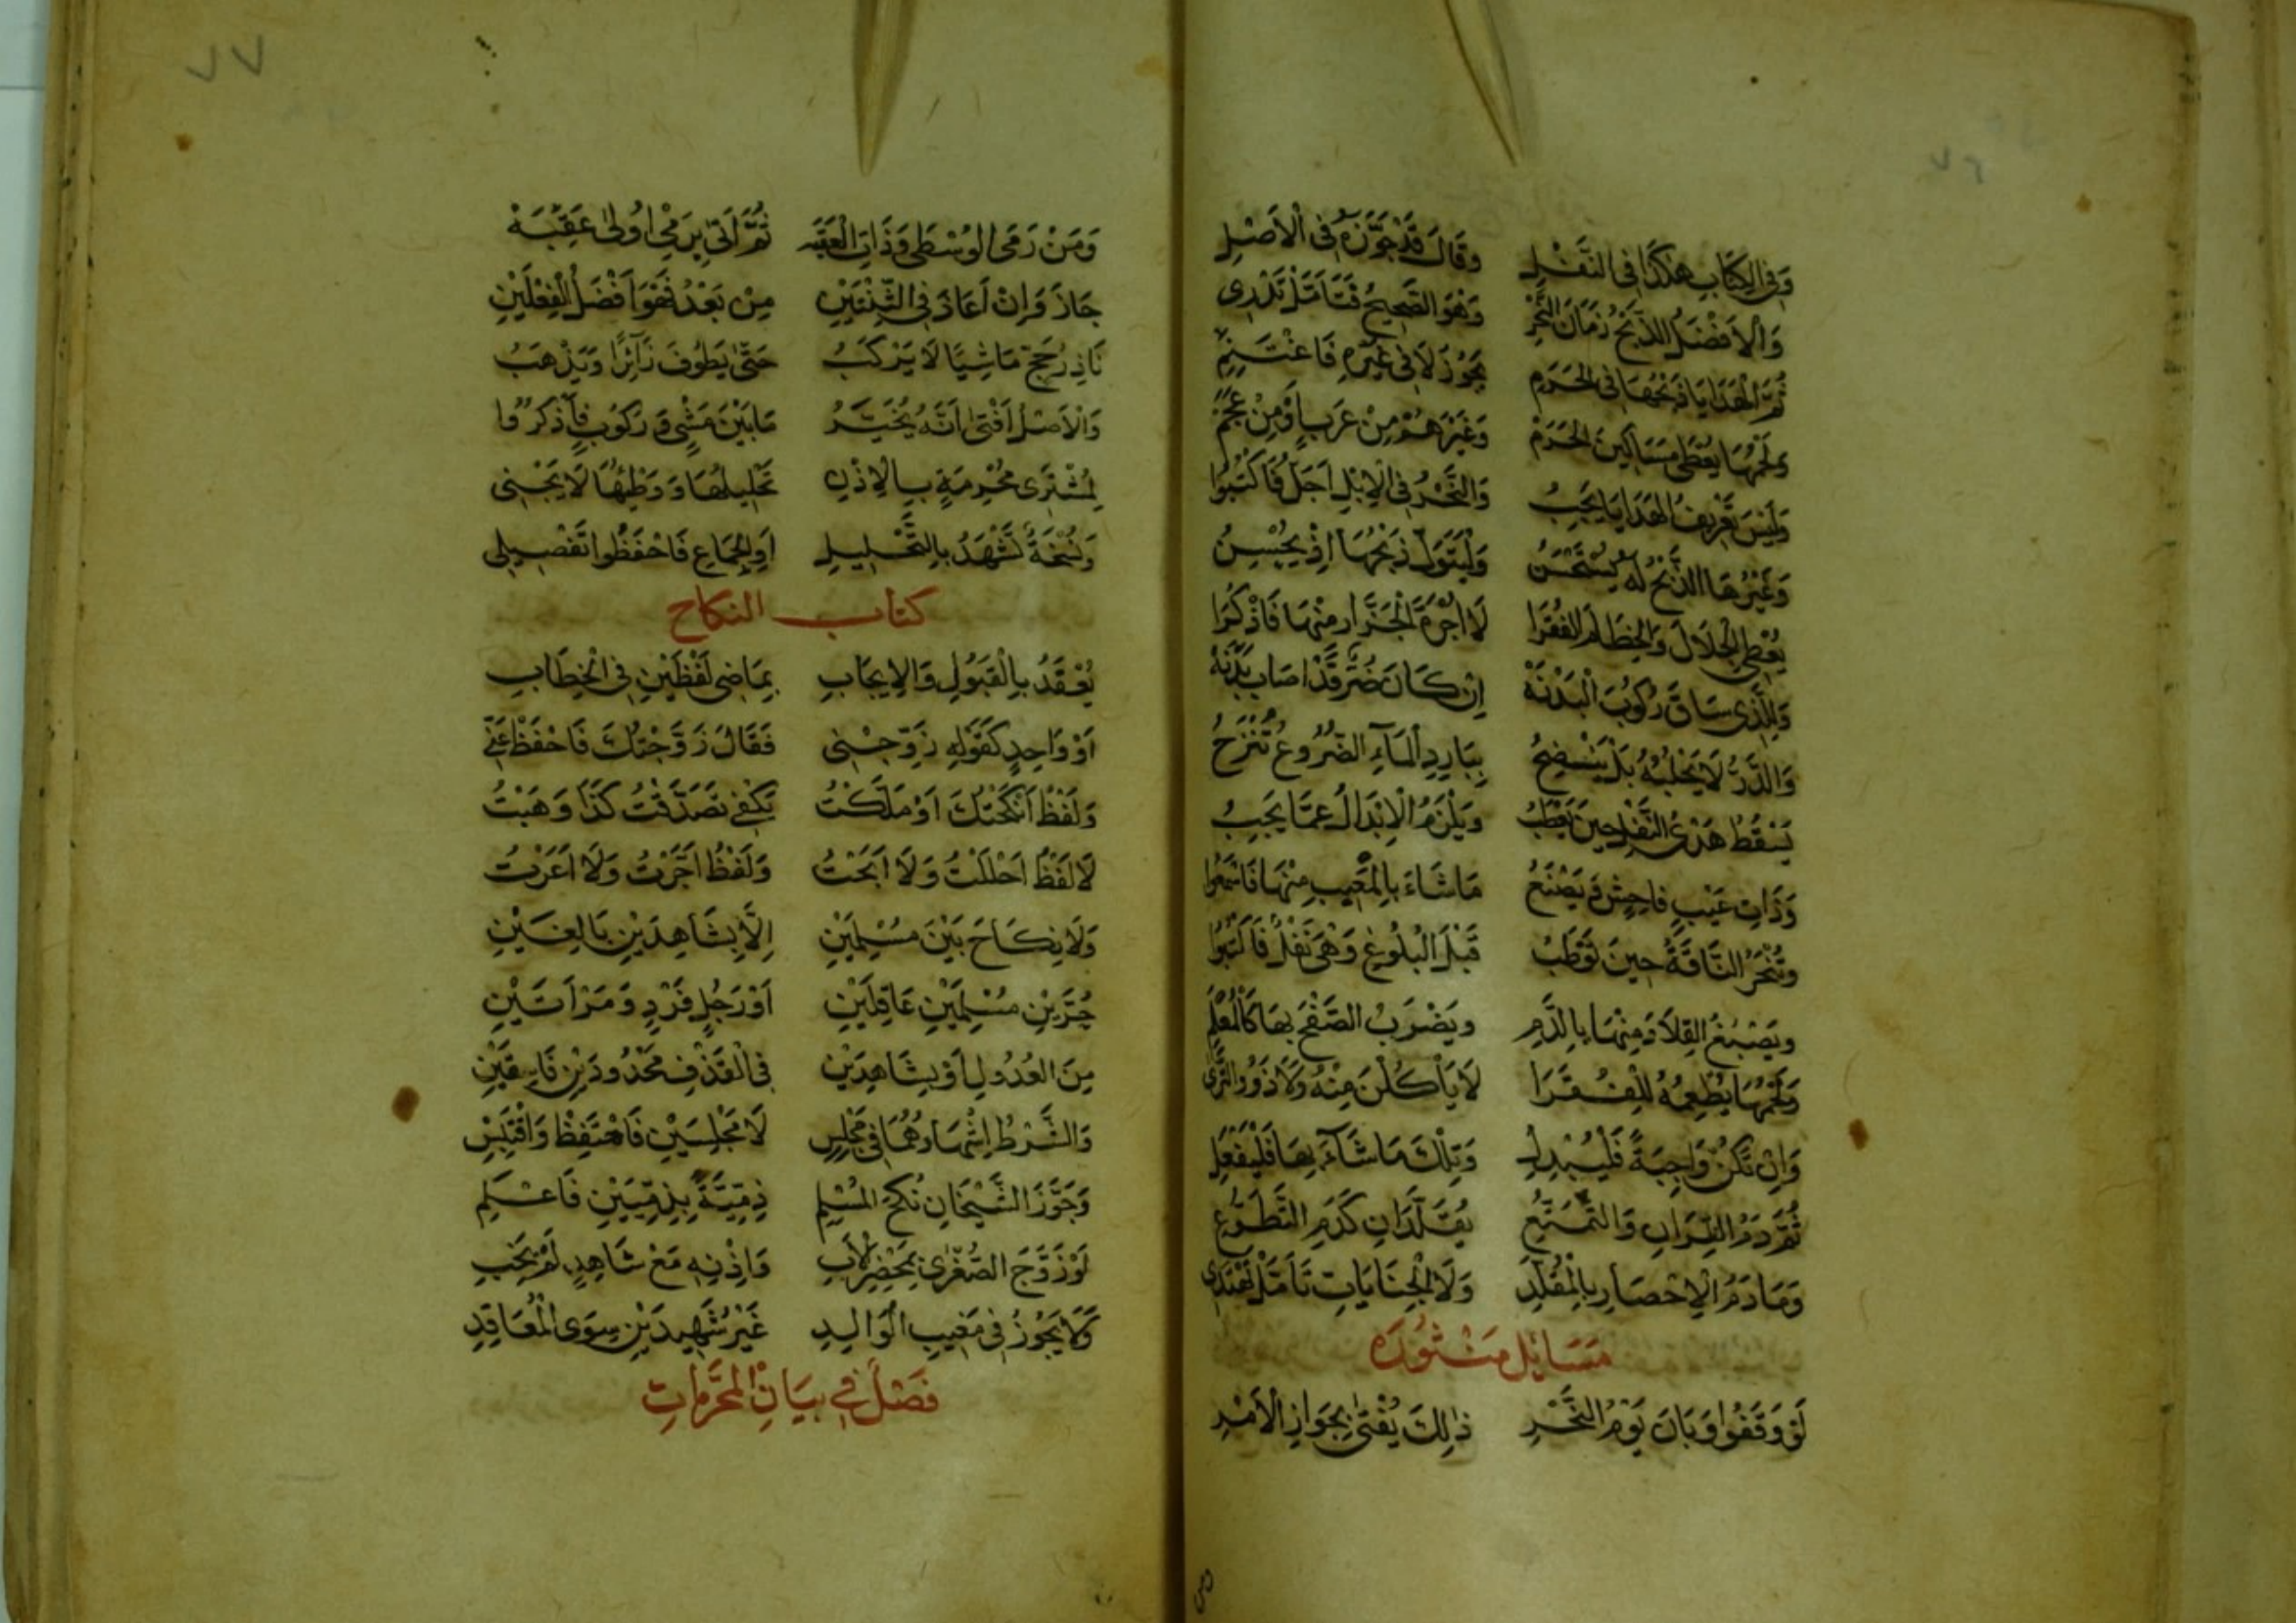 ٧٦
وَفِي الْكِتَابِ هٰكَذَا فِي النَّفْلِ وَقَالَ قَدْ جَوَّزَهُ فِي الْاَصْلِ
وَالْاَفْضَلُ الذَّبْحُ زَمَانَ النَّحْرِ وَهْوَ الصَّحِيحُ فَتَأَمَّلْ تَدْرِى
ثُمَّ الْهَدَايَا ذَبْحُهَا فِي الْحَرَمِ يَجُوزُ لَا فِي غَيْرِهِ فَاغْتَنِمِ
وَلَحْمُهَا يُعْطَى مَسَاكِينَ الْحَرَمْ وَغَيْرَهُمْ مِنْ عَرَبٍ اَوْ مِنْ عَجَمْ
وَلَيْسَ تَعْرِيفُ الْهَدَايَا يَجِبُ وَالنَّحْرُ فِي الْاِبْلِ اَجَلُّ فَاكْتُبُوا
وَغَيْرُهَا الذَّبْحُ لَهُ يُسْتَحْسَنُ وَلْيَتَوَلَّ ذَبْحَهَا اِذْ يُحْسِنُ
يُعْطِي الْجِلَالَ وَالْخِطَامَ الْفُقَرَا لَا اُجْرَةَ الْجَزَّارِ مِنْهَا فَاذْكُرَا
وَلِلَّذِى سَاقَ رُكُوبُ الْبَدَنَهْ اِنْ كَانَ ضُرٌّ قَدْ اَصَابَ بَدَنَهْ
وَالدَّرُّ لَا يَحْلِبُهُ بَلْ يَنْضِحُ بِبَارِدِ الْمَآءِ الضُّرُوعُ تُنْزَحُ
يَسْقُطُ هَدْىُ النَّفْلِ حِينَ يَعْطَبُ وَيَلْزَمُ الْاِبْدَالُ عَمَّا يَجِبُ
وَذَاتِ عَيْبٍ فَاحِشٍ وَيَصْنَعُ مَا شَاءَ بِالْمَعِيبِ مِنْهَا فَاسْمَعُوا
وَتُنْحَرُ النَّاقَةُ حِينَ تَعْطَبُ قَبْلَ الْبُلُوغِ وَهْىَ نَفْلٌ فَاكْتُبُوا
وَيَصْبُغُ الْقِلَادَ مِنْهَا بِالدَّمِ وَيَضْرَبُ الصَّفْحَ بِهَا كَالْمُعْلَمِ
وَلَحْمَهَا يُطْعِمُهُ لِلْفُقَرَا لَا يَأْكُلَنَّ مِنْهُ وَلَا ذَوُو الثَّرَى
وَاِنْ تَكُنْ وَاجِبَةً فَلْيُبْدِلِ وَتِلْكَ مَا شَآءَ بِهَا فَلْيَفْعَلِ
ثُمَّ دَمُ الْقِرَانِ وَالتَّمَتُّعِ يُقَلَّدَانِ كَدَمِ التَّطَوُّعِ
وَمَا دَمُ الْاِحْصَارِ بِالْمُقَلَّدِ وَلَا الْجِنَايَاتِ تَأَمَّلْ تَهْتَدِى
مَسَائِل مَنْثُورَه
لَوْ وَقَفُوا وَبَانَ يَوْمُ النَّحْرِ ذٰلِكَ يُفْتَى بِجَوَازِ الْاَمْرِ
٧٧
وَمَنْ رَمَى الْوُسْطَى وَذَاتَ الْعَقَبَه ثُمَّ اَتَى بِرَمْىِ اُولٰى عَقِبَهْ
جَازَ وَاِنْ اَعَادَ فِي الثِّنْتَيْنِ مِنْ بَعْدُ فَهْوَ اَفْضَلُ الْفِعْلَيْنِ
نَاذِرُ حَجٍّ مَاشِيًا لَا يَرْكَبُ حَتّٰى يَطُوفَ زَآئِرًا وَيَذْهَبُ
وَالْاَصْلُ اَفْتَى اَنَّهُ يُخَيَّرُ مَا بَيْنَ مَشْىٍ وَرُكُوبٍ فَاذْكُرُوا
لِمُشْتَرِى مُحْرِمَةٍ بِالْاِذْنِ تَحْلِيلُهَا وَوَطْئُهَا لَا يَجْنِى
وَنُسْخَةٌ تَشْهَدُ بِالتَّحْلِيلِ اَوِ الْجِمَاعِ فَاحْفَظُوا تَفْصِيلِى
كتاب النكاح
يُعْقَدُ بِالْقَبُولِ وَالْاِيجَابِ بِمَاضِى لَفْظَيْنِ فِي الْخِطَابِ
اَوْ وَاحِدٍ كَقَوْلِهِ زَوِّجْنِى فَقَالَ زَوَّجْتُكَ فَاحْفَظْ عَنِّي
وَلَفْظُ اَنْكَحْتُكَ اَوْ مَلَّكْتُ يَكْفِي تَصَدَّقْتُ كَذَا وَهَبْتُ
لَا لَفْظُ اَحْلَلْتُ وَلَا اَبَحْتُ وَلَفْظُ اَجَّرْتُ وَلَا اَعَرْتُ
وَلَا نِكَاحَ بَيْنَ مُسْلِمَيْنِ اِلَّا بِشَاهِدَيْنِ بَالِغَيْنِ
حُرَّيْنِ مُسْلِمَيْنِ عَاقِلَيْنِ اَوْ رَجُلٍ فَرْدٍ وَمَرْاَتَيْنِ
مِنَ الْعُدُولِ اَوْ بِشَاهِدَيْنِ فِي الْقَذْفِ مَحْدُودَيْنِ فَاسِقَيْنِ
وَالشَّرْطُ اِشْهَادُهُمَا فِي مَجْلِسِ لَا مَجْلِسَيْنِ فَاحْتَفِظْ وَاقْتَبِسْ
وَجَوَّزَ الشَّيْخَانِ نُكْحَ الْمُسْلِمِ ذِمِّيَّةً بِذِمِّيَّيْنِ فَاعْلَمِ
لَوْ زَوَّجَ الصُّغْرٰى بِمَحْضَرِ الْاَبِ وَاِذْنِهِ مَعْ شَاهِدٍ لَمْ يَجِبِ
وَلَا يَجُوزُ فِي مَغِيبِ الْوَالِدِ غَيْرُ شَهِيدَيْنِ سِوَى الْمُعَاقِدِ
فَصْلٌ فِي بَيَانِ الْمُحَرَّمَاتِ